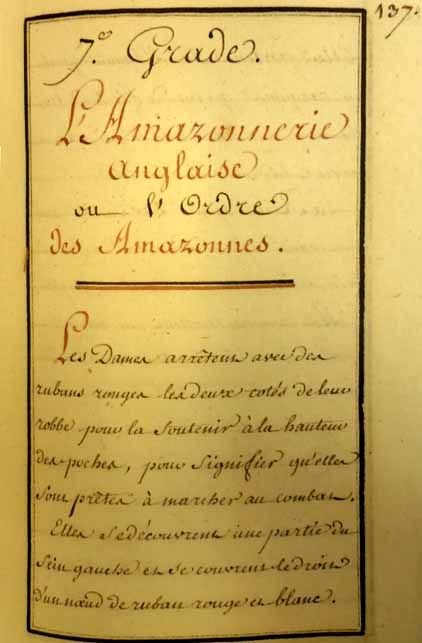 137.
7.e Grade.
L'Amazonnerie
Anglaise
ou l'Ordre
des Amazonnes.
Les Dames arrêtent avec des
rubans rouges les deux cotés de leur
robbe pour la soutenir à la hauteur
des poches, pour signifier qu'elles
sont prêtes à marcher au combat.
Elles se découvrent une partie du
sein gauche et se couvrent le droit
d'un nœud de ruban rouge et blanc.